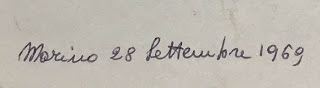 Marino 28 Settembre 1969